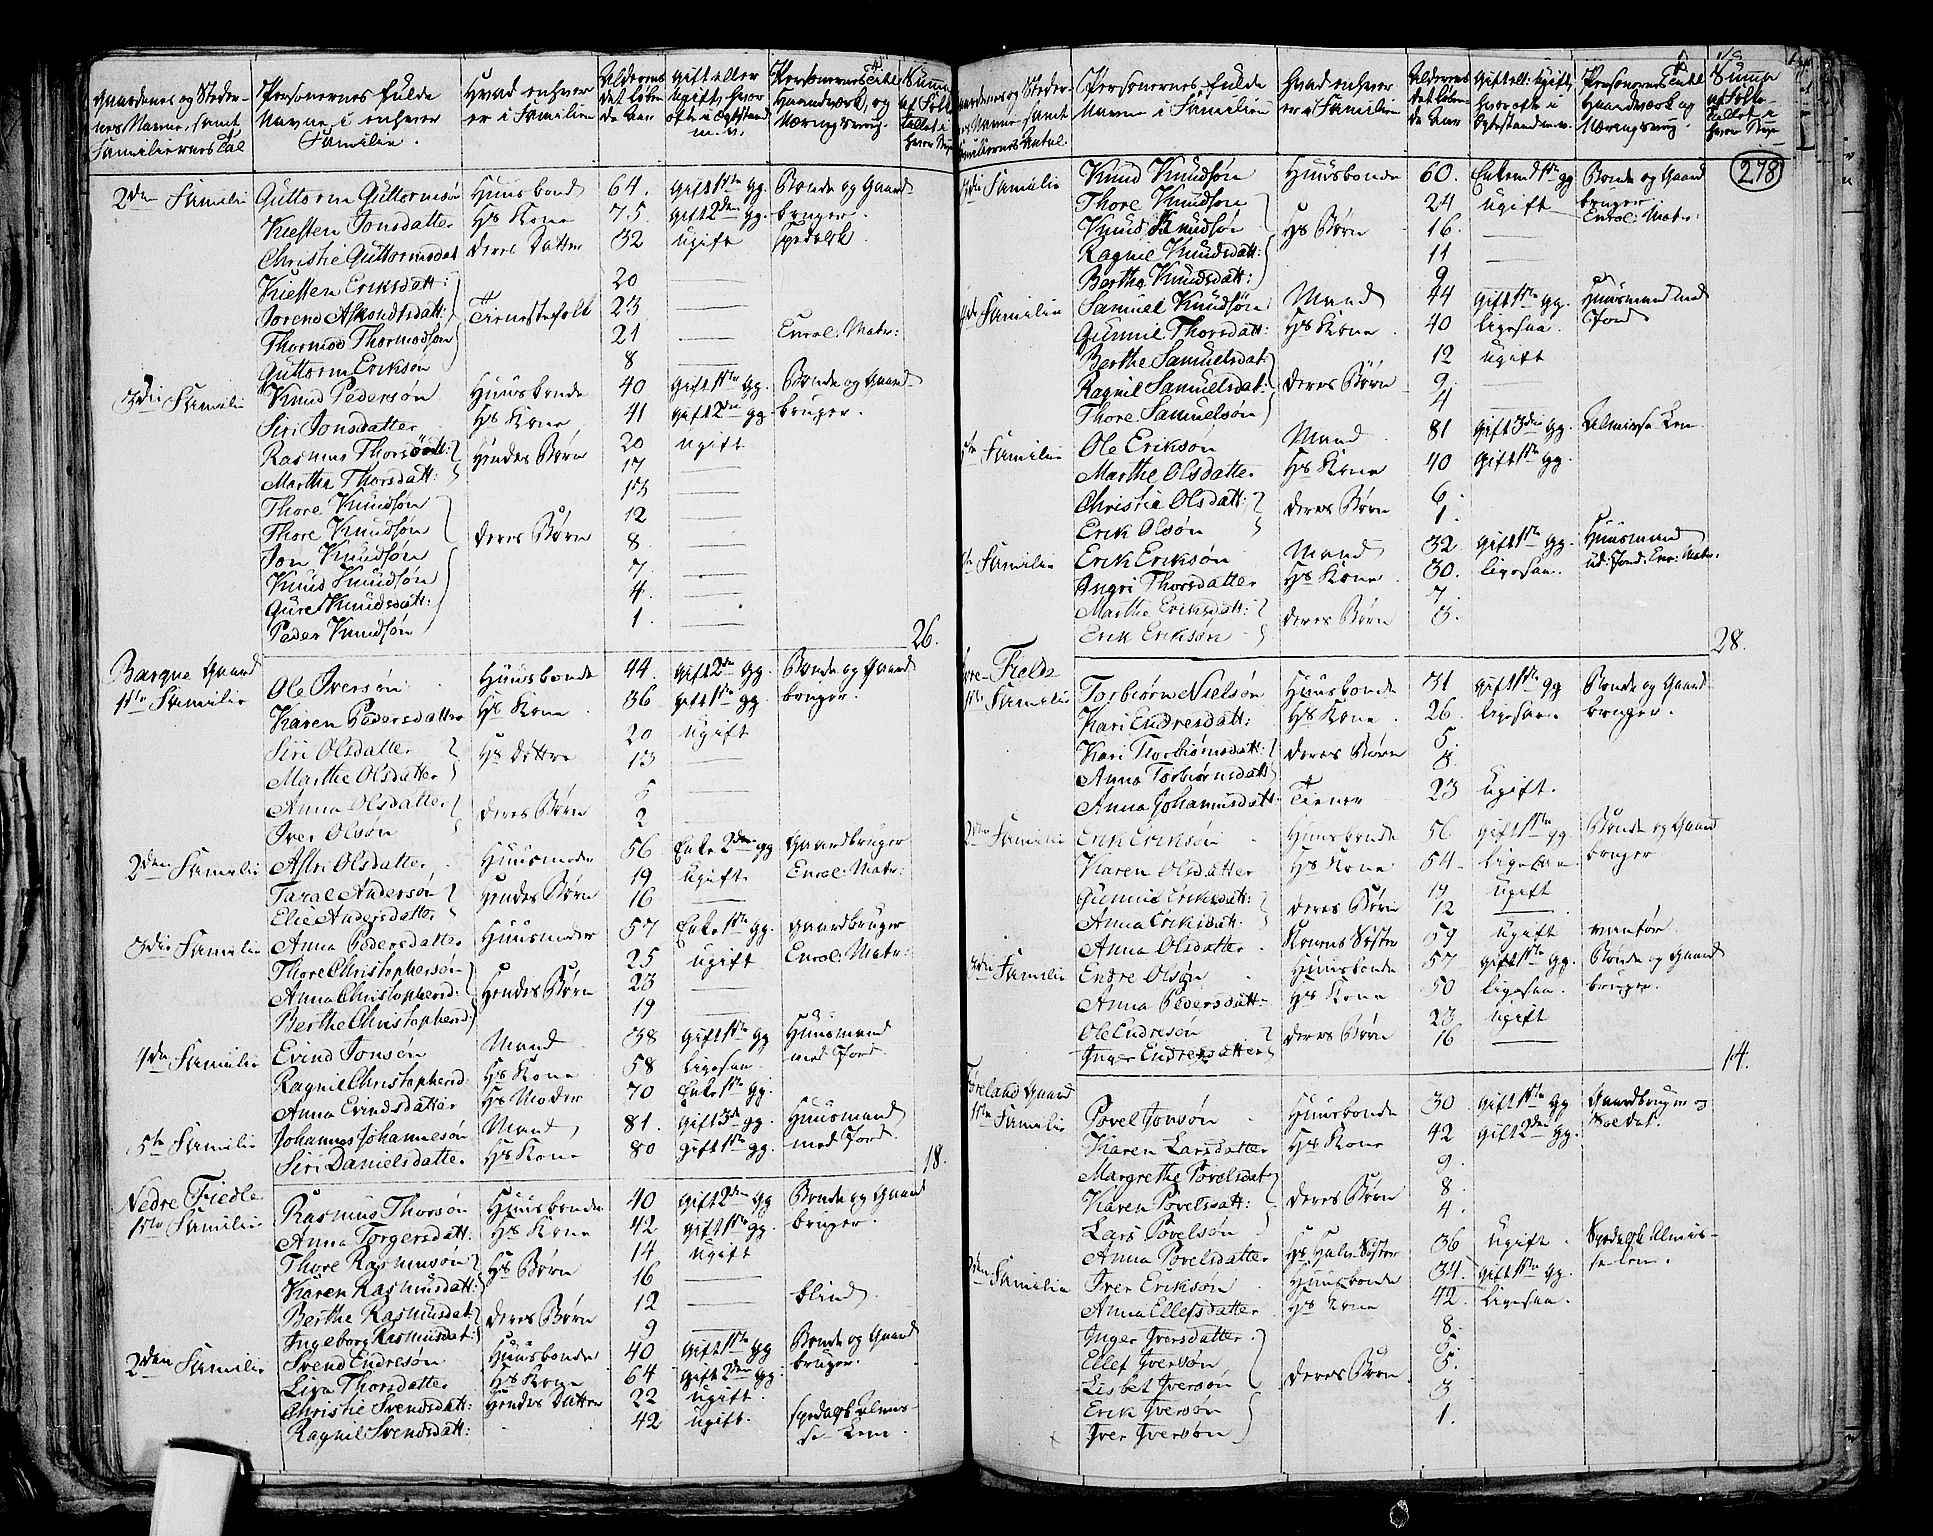 Gaardenes og Steder-
nes Navne, samt
Familiernes Tal
Personernes fulde
Navne i enhver
Familie.
Hvad enhver
er i Familien
Alderens
det løben
de Aar
gift eller
ugift, hvor
ofte i Egtestand
m. v.
Personernes Titel
Haandværk og
Næringsvey.
2den Familie Guttorm Guttormsøn Huusbond 64. gift 1ste Gg. Bonde og Gaard
Kiesten Jonsdatter Hs Kone 75. gift 2den Gg. bruger.
Christie Guttormsdat deres Datter 32 ugift spedalsk.
Kiesten Eriksdatt: 20 —
Sorend Askondsdatt: Tienestefolk 23 —
Thormod Thormodsøn 21 — Enrol: Matr:
Guttorm Eriksøn 8 —
3die Familie Knud Pedersøn Huusbonde 40 gift 1ste Gg. Bonde og Gaard-
Siri Jonsdatter Hs Kone 41 gift 2den Gg bruger.
Rasmus Thorsøn Hendes Børn 20 ugift
Martha Thorsdatt: 17 —
Thore Knudsøn 13 —
Thore Knudsøn deres Børn 12 —
Jon Knudsøn 8. —
Knud Knudsøn 7 —
Gure Knudsdatt: 4. —
Peder Knudsøn 1. —
26.
Barque Gaard
1ste Familie Ole Iversøn Huusbonde 44 gift 2den Gg. Bonde og Gaard
Karen Pedersdatter Hs Kone 36 gift 1ste Gg bruger.
Siri Olsdatter Hs Døttre 20 ugift
Marthe Olsdatter 13 —
Anna Olsdatter deres Børn 5 —
Iver Olsøn 2 —
2den Familie Astri Olsdatter Huusmoder 56 Enke 2den gg Gaardbruger
Taral Andersøn Hendes Børn 19 ugift Enrol: Matr:
Elie Andersdatter 16 —
3die Familie Anna Pedersdatter Huusmoder 57 Enke 1ste Gg. Gaardbruger
Thore Christophersøn 25 ugift Enrol: Matr:
Anna Christophersd: Hendes Børn 23 —
Berthe Christophersd: 19 —
4de Familie Evind Jonsøn Mand 38 gift 1ste Gg Huusmand
Ragnil Christophersd: Hs Kone 58 ligesaa. med Jord.
Anna Evindsdatter Hs Moder 70 Enke 1ste Gg.
5te Familie Johannes Johannesøn Mand 81. gift 3de Gg. Huusmand
Siri Danielsdatter Hs Kone 80 gift 1ste Gg. med Jord.
18.
Nedre Fiedle
1ste Familie Rasmus Thorsøn Huusbonde 40 gift 2den Gg Bonde og Gaard
Anna Torgersdatt: Hs Kone 42 gift 1ste gg. bruger.
Thore Rasmusøn Hs Børn 14 ugift
Karen Rasmusdatt: 16 —
Berthe Rasmusdat deres Børn 12 — blind.
Ingeborg Rasmusdat: 9 —
2den Familie Svend Endresøn Huusbonde 40 gift 1ste Gg Bonde og Gaard
Liva Thorsdatter Hs Kone 64 gift 2den Gg. bruger.
Christie Svendsdatt: Hendes Datter 22 ugift.
Ragnil Svendsdatt: 42 ugift. spedalsk Almis-
se Lem.
Personernes fulde
Navne i Familien
Hvad enhver
er i Familien
Alderens
det løben
de Aar
Gift ell: Ugift,
hvor ofte i
Egtestand m. v.
Personernes Titel
Haandværk og
Næringsvey.
278
3die Familie Knud Knudsøn Huusbonde 60. Enkemd 1ste gg Bonde og Gaard
Thore Knudsøn 24 ugift bruger
Knud Knudsøn Hs Børn 16. — Enrol: Matr:
Ragnil Knudsdatt: 11 —
Bertha Knudsdatt: 9 —
4de Familie Samuel Knudsøn Mand 44 gift 1ste Gg. Huusmand med
Gunnil Thorsdatt: Hs Kone 40 ligesaa. Jord
Berthe Samuelsdat 12 ugift
Ragnil Samuelsdat: deres Børn 9 —
Thore Samuelsøn 4 —
5te Familie Ole Eriksøn Mand 81 gift 3die Gg. Almisse Lem
Marthe Olsdatter Hs Kone 40 gift 1ste Gg.
Christie Olsdatt: deres Børn 6.
Erik Olsøn 1.
Familie Erik Eriksøn Mand 32 gift 1ste Gg. Huusmand
Ingri Thorsdatter Hs Kone 30. ligesaa. ud: Jord: Enr: Matr:
Marthe Eriksdatt: deres Børn 7
Erik Eriksøn 3.
28.
Fielde
1ste Familie Torbiørn Nielsøn Huusbonde 31 gift 1ste Gg Bonde og Gaard
Kari Endresdatt: Hs Kone 26. ligesaa. bruger.
Kari Thorbiørnsdatt: deres Børn 5.
Anna Torbiørnsdatt 3.
Anna Johannisdatt Tiener 23 ugift.
2den Familie Erik Eriksøn Huusbonde 56 gift 1ste gg Bonde og Gaard
Karen Olsdatter Hs Kone 54 ligesaa bruger
Gunnil Eriksdatt: deres Børn 19 ugift
Anna Eriksdatt: 12 —
Anna Olsdatter Konens Søster 59 ugift vanfør.
3die Familie Endre Olsøn Huusbonde 57 gift 1ste Gg. Bonde og Gaard
Anna Pedersdatt: Hs Kone 50 ligesaa. bruger.
Ole Endresen deres Børn 23 ugift
Inger Endresdatter 16 —
14.
Førland Gaard
1ste Familie Povel Jonsøn Huusbonde 30 gift 1ste Gg Gaardbruger og
Karen Larsdatter Hs Kone 42 gift 2den Gg. Soldat.
Margrethe Povelsdat 9.
Karen Povelsdatt: deres Børn 8.
Lars Povelsøn 4.
Anna Povelsdatter Hs Halv Søster 36 ugift. Spedalsk Almis-
se Lem.
2den Familie Iver Eriksøn Huusbonde 34. gift 1ste Gg.
Anna Ellefsdatter Hs Kone 42. ligesaa.
Inger Iversdatter 8.
Ellef Iversøn
Lisbet Iversøn deres Børn 5.
Erik Iversøn 3
Iver Iversøn 1.